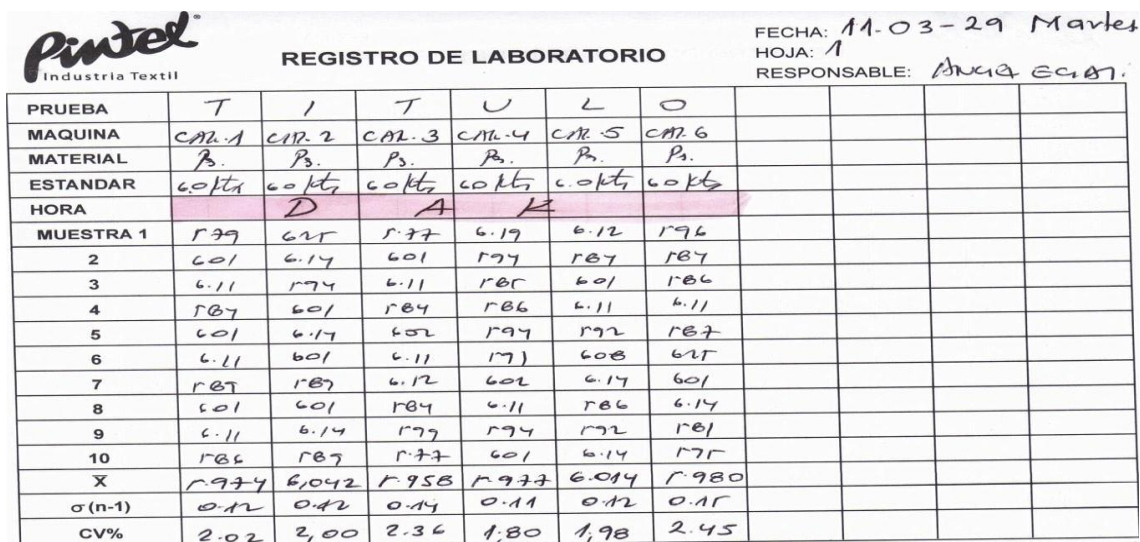 Pintex
Industria Textil
REGISTRO DE LABORATORIO
FECHA: 11-03-29 Martes
HOJA: 1
RESPONSABLE:
PRUEBA T I T U L O
MAQUINA CAR.1 CAR.2 CAR.3 CAR.4 CAR.5 CAR.6
MATERIAL Ps. Ps. Ps. Ps. Ps. Ps.
ESTANDAR 60 ktx 60 ktx 60 ktx 60 ktx 6.0 ktx 60 ktx
HORA D A K
MUESTRA 1 579 625 5.77 6.19 6.12 596
2 601 6.14 601 594 584 584
3 6.11 594 6.11 585 601 586
4 584 601 584 586 6.11 6.11
5 601 6.14 602 594 592 587
6 6.11 601 6.11 591 608 625
7 589 589 6.12 602 6.14 601
8 601 601 584 6.11 586 6.14
9 6.11 6.14 599 594 592 581
10 586 589 5.77 601 6.14 595
X̄ 5.974 6,042 5.958 5.977 6.014 5.980
σ (n-1) 0.12 0.12 0.14 0.11 0.12 0.15
CV% 2.02 2,00 2.36 1.80 1,98 2.45